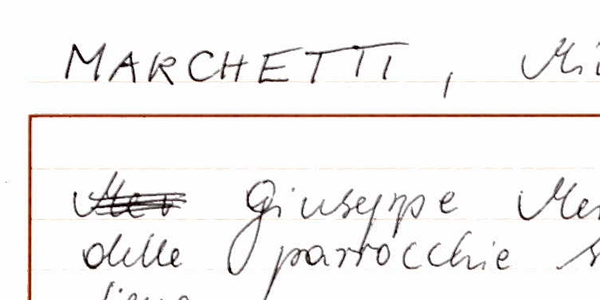 MARCHETTI, Mi
Giuseppe Mer
delle parrocchie s